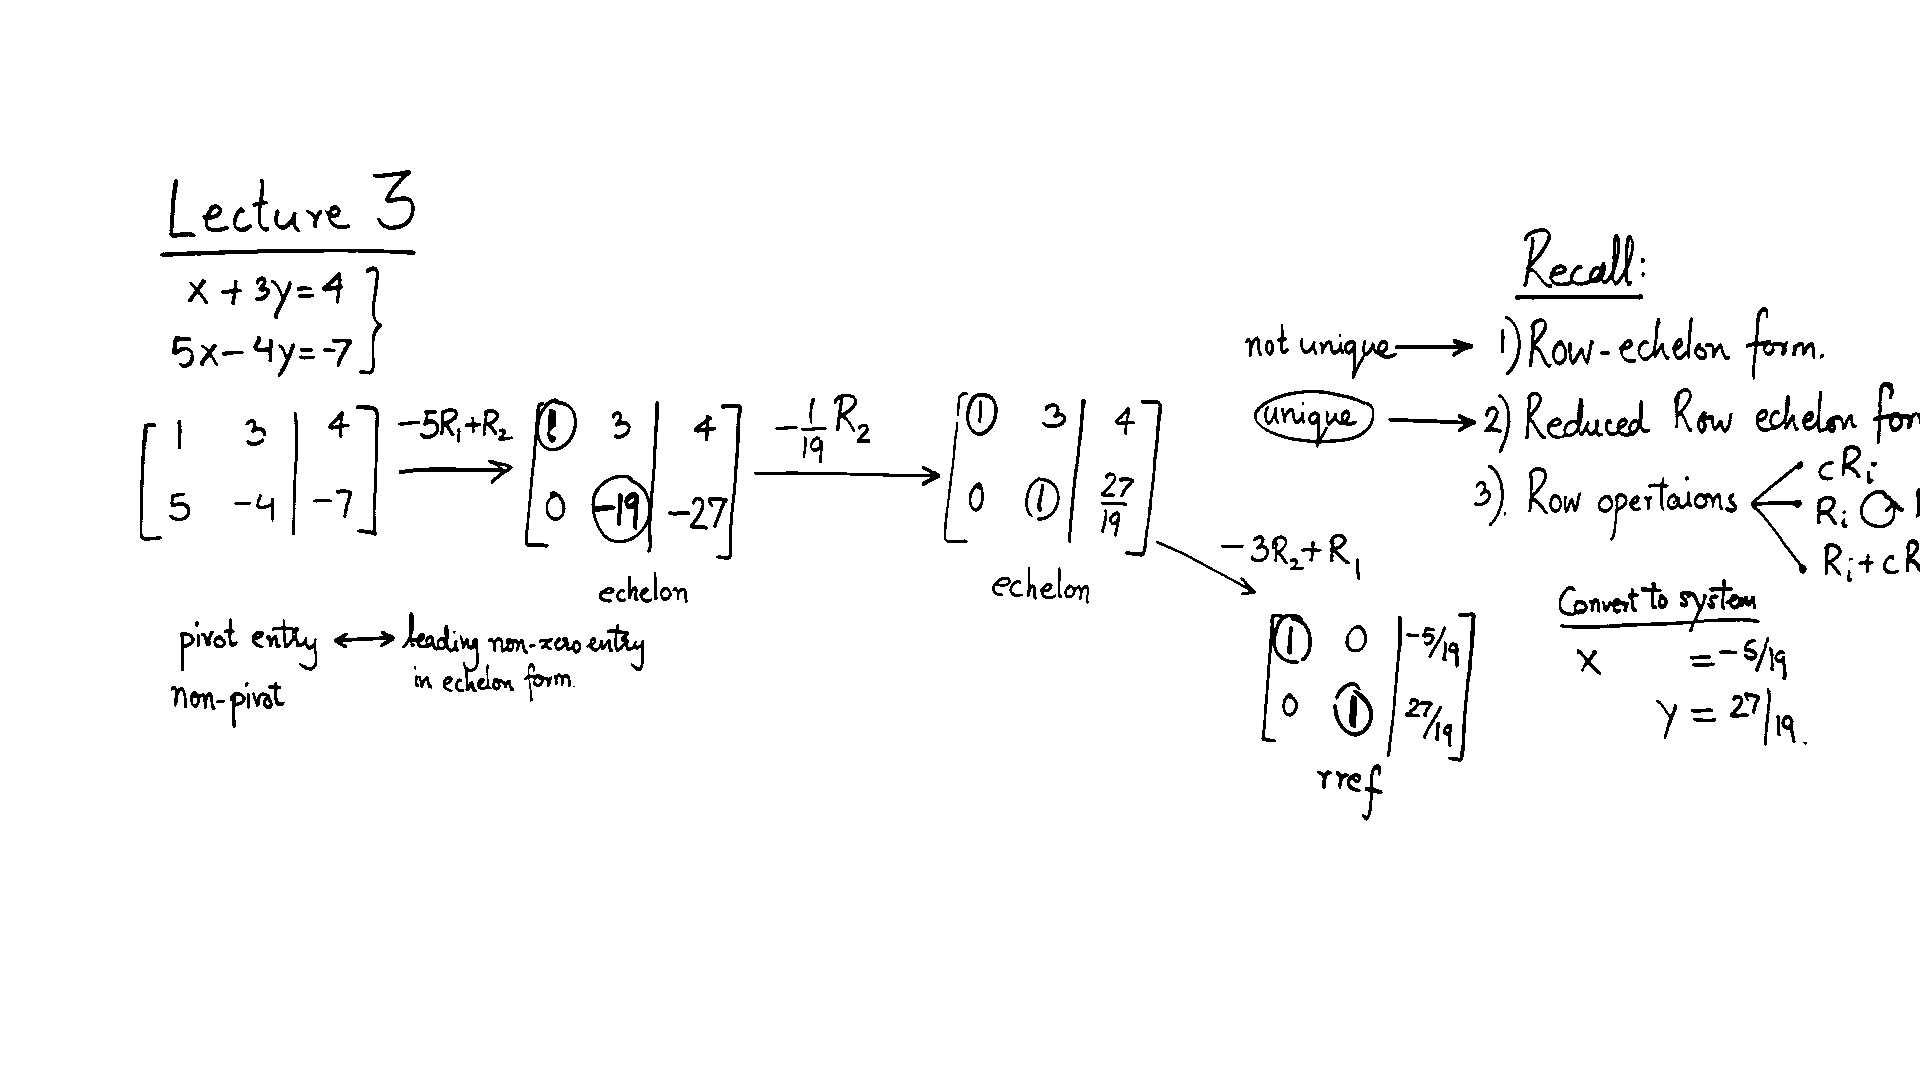 Lecture 3
x + 3y = 4
5x - 4y = -7
[ 1 3 | 4 ]
[ 5 -4 | -7 ]
-5R₁+R₂
[ 1 3 | 4 ]
[ 0 -19 | -27 ]
echelon
-1/19 R₂
[ 1 3 | 4 ]
[ 0 1 | 27/19 ]
echelon
-3R₂+R₁
[ 1 0 | -5/19 ]
[ 0 1 | 27/19 ]
rref
pivot entry ↔ leading non-zero entry
in echelon form.
non-pivot
Recall:
not unique → 1) Row-echelon form.
unique → 2) Reduced Row echelon for
3). Row opertaions
cRᵢ
Rᵢ
Rᵢ + cR
Convert to system
x = -5/19
y = 27/19.